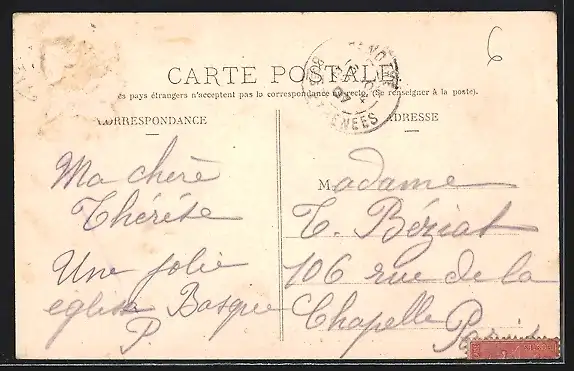 6
CARTE POSTALE
es pays étrangers n'acceptent pas la correspondance au recto. (Se renseigner à la poste).
CORRESPONDANCE
ADRESSE
Ma chère
Thérèse
Une jolie
eglise Basque
P.
Madame
T. Béziat
106 rue de la
Chapelle Paris